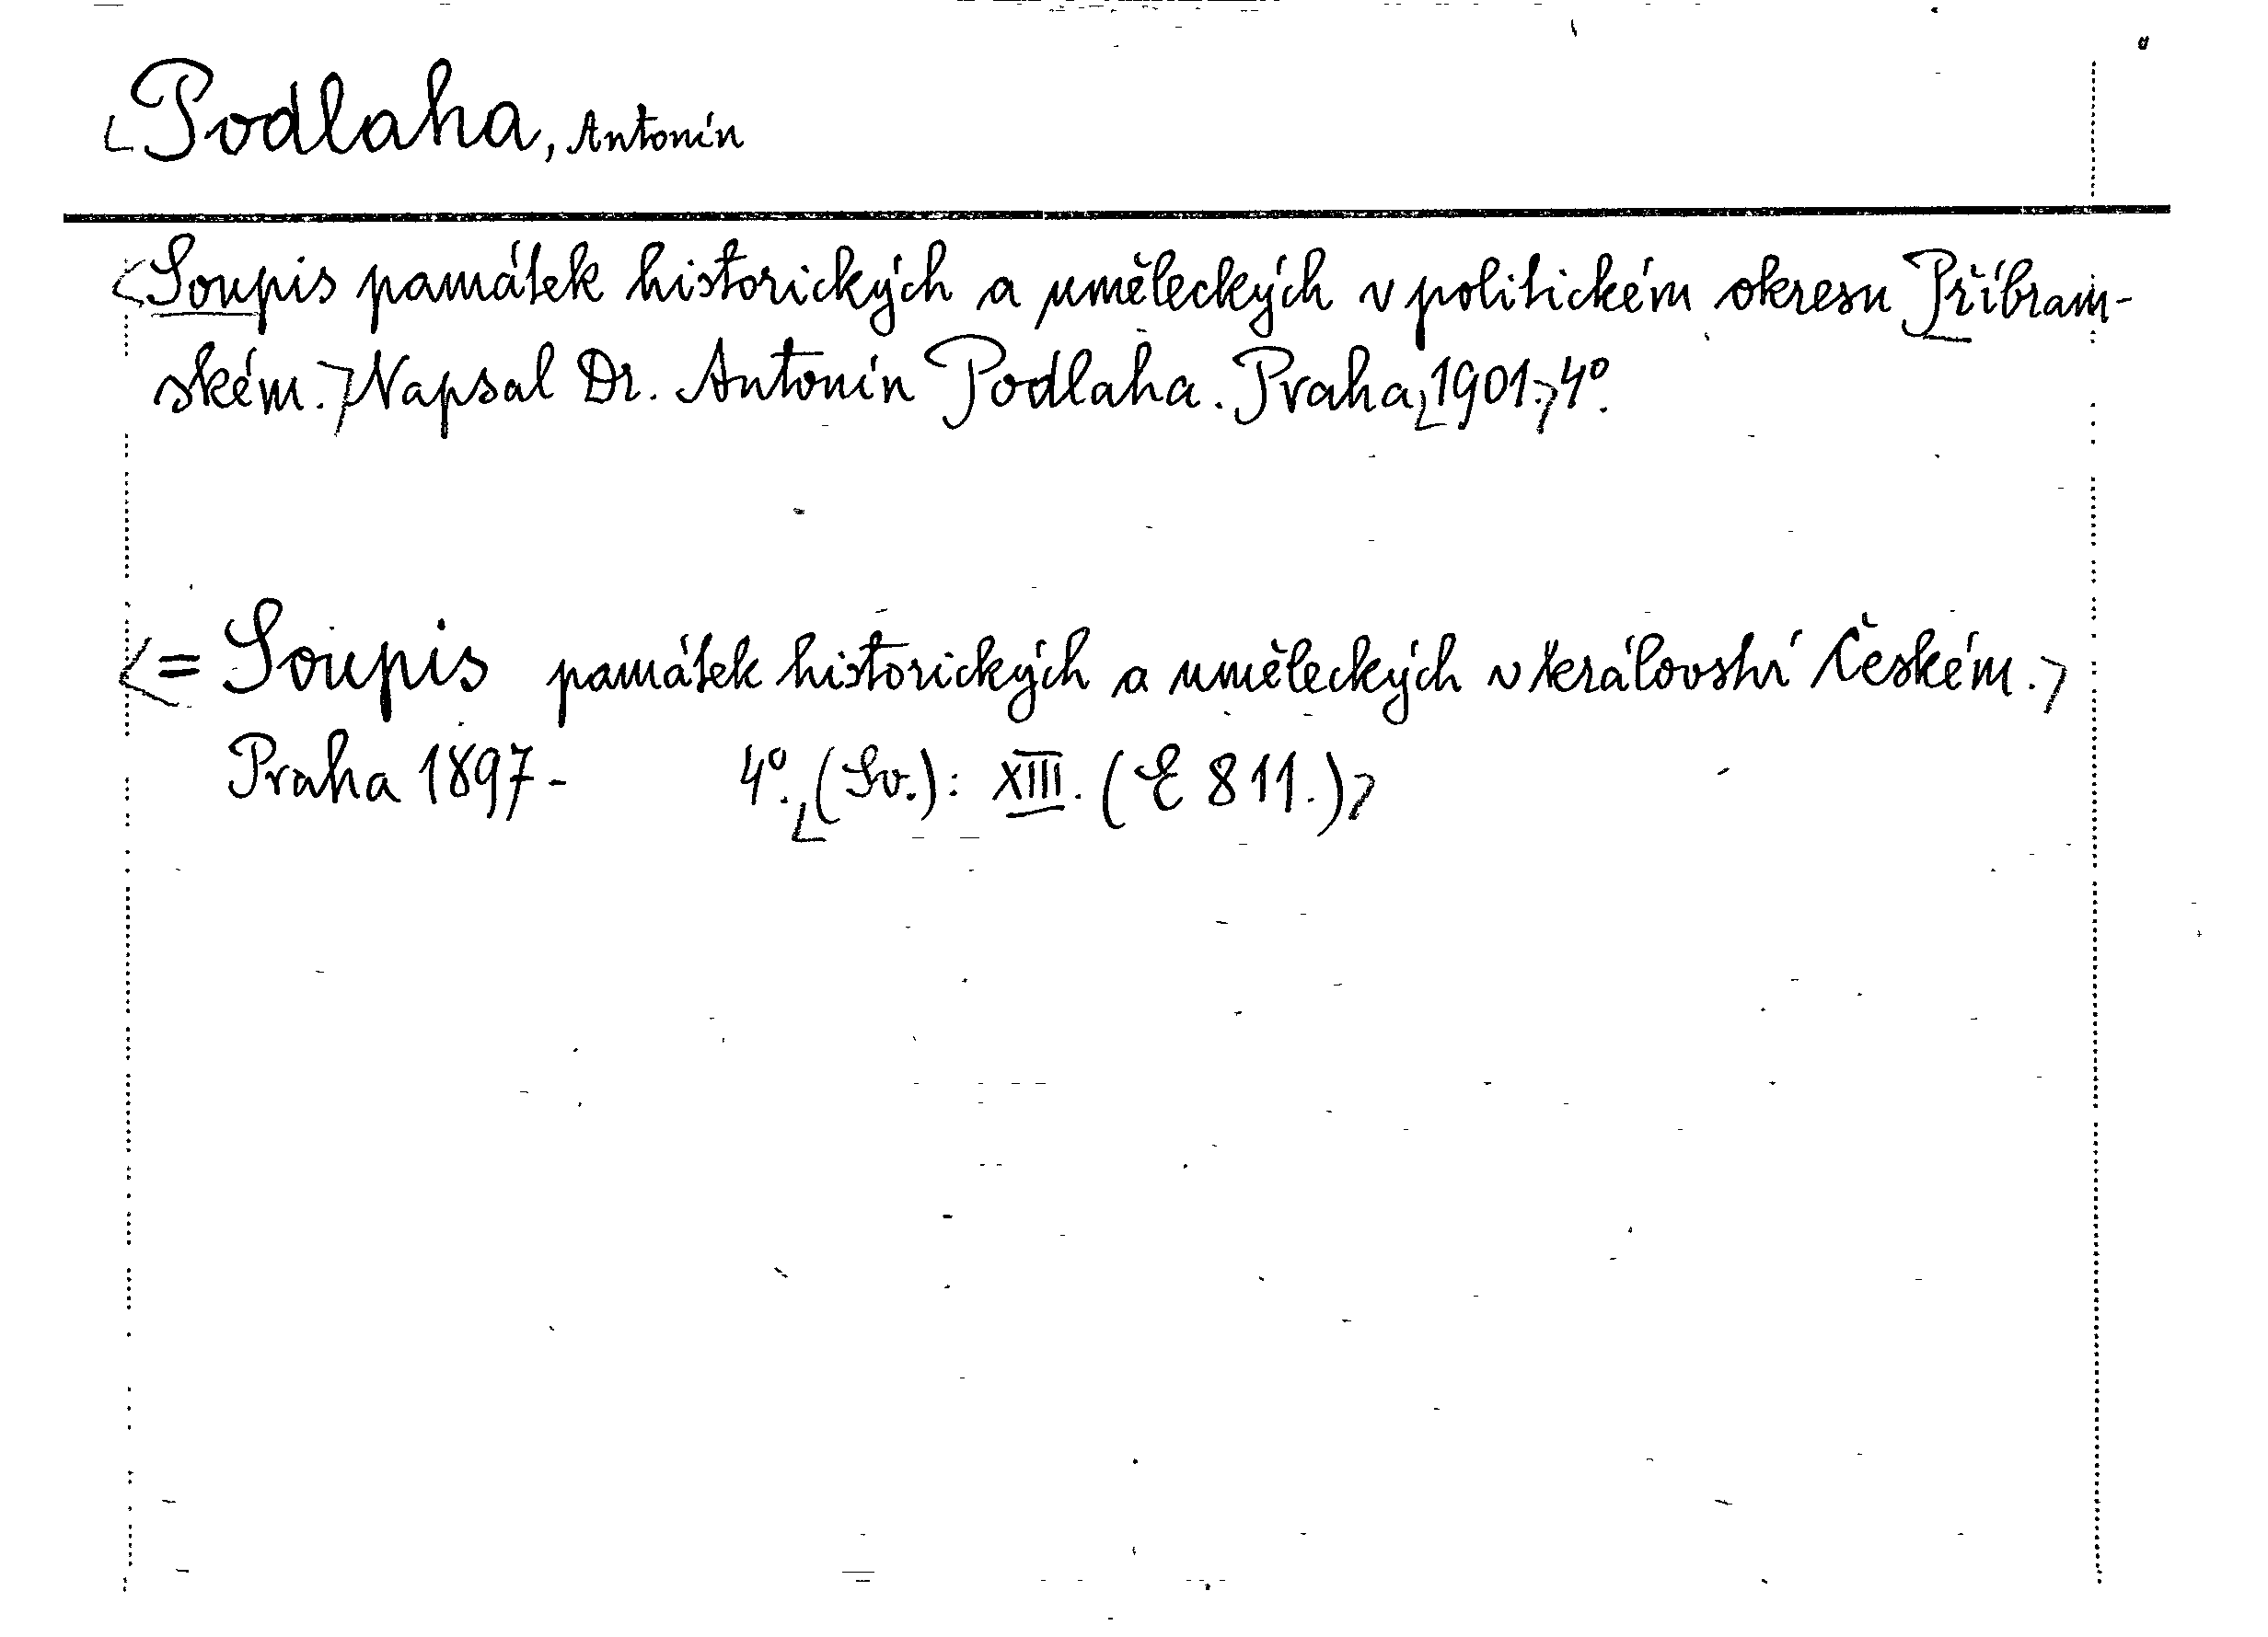 Podlaha, Antonín
Soupis památek historických a uměleckých v politickém okresu Příbram-
ském. Napsal Dr. Antonín Podlaha. Praha, 1901. 4°.
= Soupis památek historických a uměleckých v království Českém.
Praha 1897- 4°. (Sv.): XIII. (E 811.)